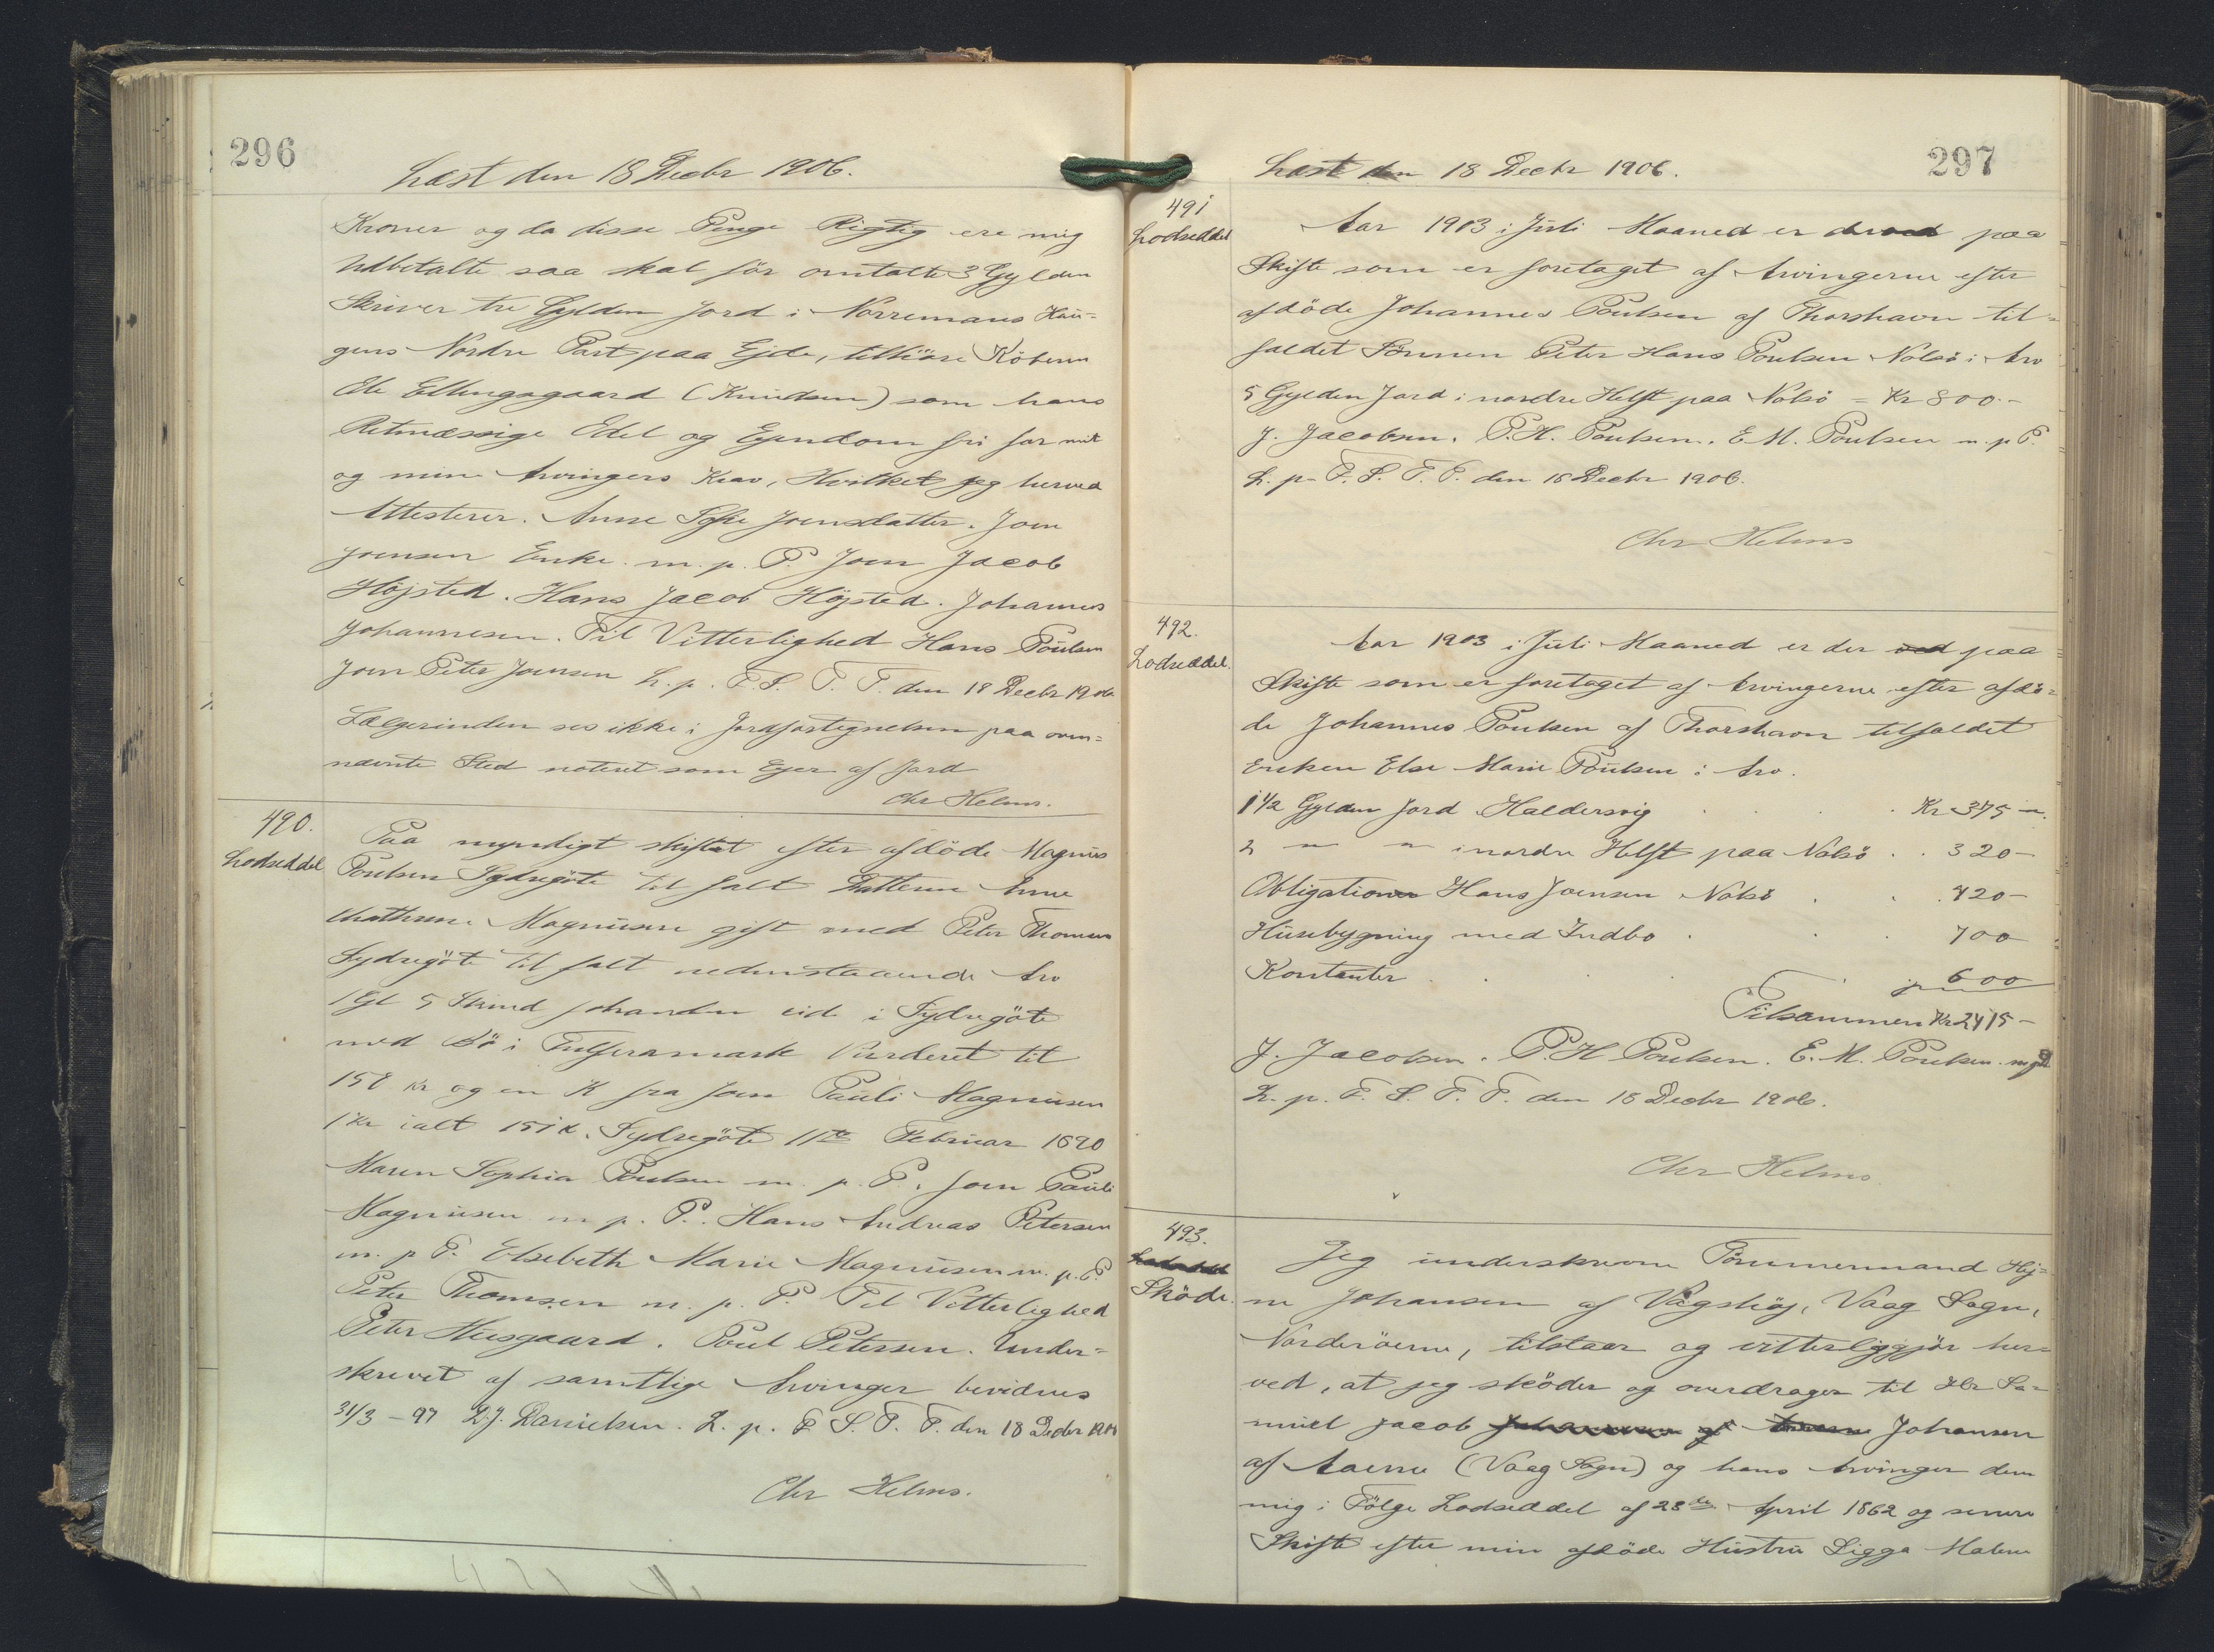 296
Læst den 18 Decbr 1906.
Kroner og da disse Penge Rigtig ere mig
Udbetalte saa skal för omtalte 3 Gylden
Skriver tre Gylden Jord i Norremans Hau=
gens Nordre Part paa Ejde, tilhöre Köberen
Ole Ellingsgaard (Knudsen) som hans
Retmæssige Odel og Ejendom fri for mit
og mine Arvingers Krav, Hvilket jeg herved
Attesterer. Anne Sofie Joensdatter. Joen
Joensen Enke. m. p. P. Joen Jacob
Höjsted. Hans Jacob Höjsted. Johannes
Johannesen. Til Vitterlighed Hans Poulsen
Joen Peter Joensen L. p. F. S. T. T. den 18 Decbr 1906
Sælgerinden ses ikke i Jordfortegnelsen paa oven=
nævnte Sted noteret som Ejer af Jord
Chr Helms.
490.
Lodseddel
Paa myndigt skiftet efter afdöde Magnus
Poulsen Sydregöte til falt Datteren Anne
Cathrine Magnusen gift med Peter Thomsen
Sydregöte til falt nedenstaaende Arv
1 Gl 5 Skind i Sydregöte
med Bö i vurderet til
150 Kr og en K fra Joen Pauli Magnusen
1 Kr ialt 151 K. Sydregöte 11te Februar 1890
Maren Sophia Poulsen m. p. P. Joen Pauli
Magnusen m. p. P. Hans Andreas Petersen
m. p P. Elsebeth Marie Magnusen m. p. P.
Peter Thomsen m. p. P. Til Vitterlighed
Peter Husgaard. Poul Petersen. Under=
skrevet af samtlige Arvinger bevidnes
31/3 - 97 D. J. Danielsen. L. p. F. S. T. T. den 18 Decbr 1906
Chr Helms.
297
Læst den 18 Decbr 1906.
491
Lodseddel
Aar 1903 i Juli Maaned er der paa
Skifte som er foretaget af Arvingerne efter
afdöde Johannes Poulsen af Thorshavn til=
faldet Sönnen Peter Hans Poulsen Nolsö i Arv
5 Gylden Jord i nordre Helft paa Nolsö = Kr 800.-
J. Jacobsen. P. H. Poulsen. E. M. Poulsen m. p P.
L. p. F. S. T. T. den 18 Decbr 1906.
Chr Helms
492.
Lodseddel.
Aar 1903 i Juli Maaned er der ved paa
Skifte som er foretaget af Arvingerne efter afdö=
de Johannes Poulsen af Thorshavn tilfaldet
Enken Else Marie Poulsen i Arv.
1 1/2 Gylden Jord Haldersvig . . . Kr 375 -
2 " " i nordre Helft paa Nolsö . . 320 -
Obligation Hans Joensen Nolsö . . 420 -
Husebygning med Indbo . . . 700
Kontanter . . . 600
Tilsammen Kr 2415 -
J. Jacobsen. P. H Poulsen. E. M. Poulsen. m p P
L. p. F. S. T. T. den 18 Decbr 1906.
Chr Helms.
493.
Lodseddel
Sköde.
Jeg underskrevne Tömmermand Hej=
ne Johansen af Vaagshöj, Vaag Sogn,
Norderöerne, tilstaar og vitterliggjör her=
ved, at jeg sköder og overdrager til Hr Sa=
muel Jacob Johansen
af Aaerne (Vaag Sogn) og hans Arvinger dem
mig i Fölge Lodseddel af 28de April 1862 og senere
Skifte efter min afdöde Hustru Sigga Malene